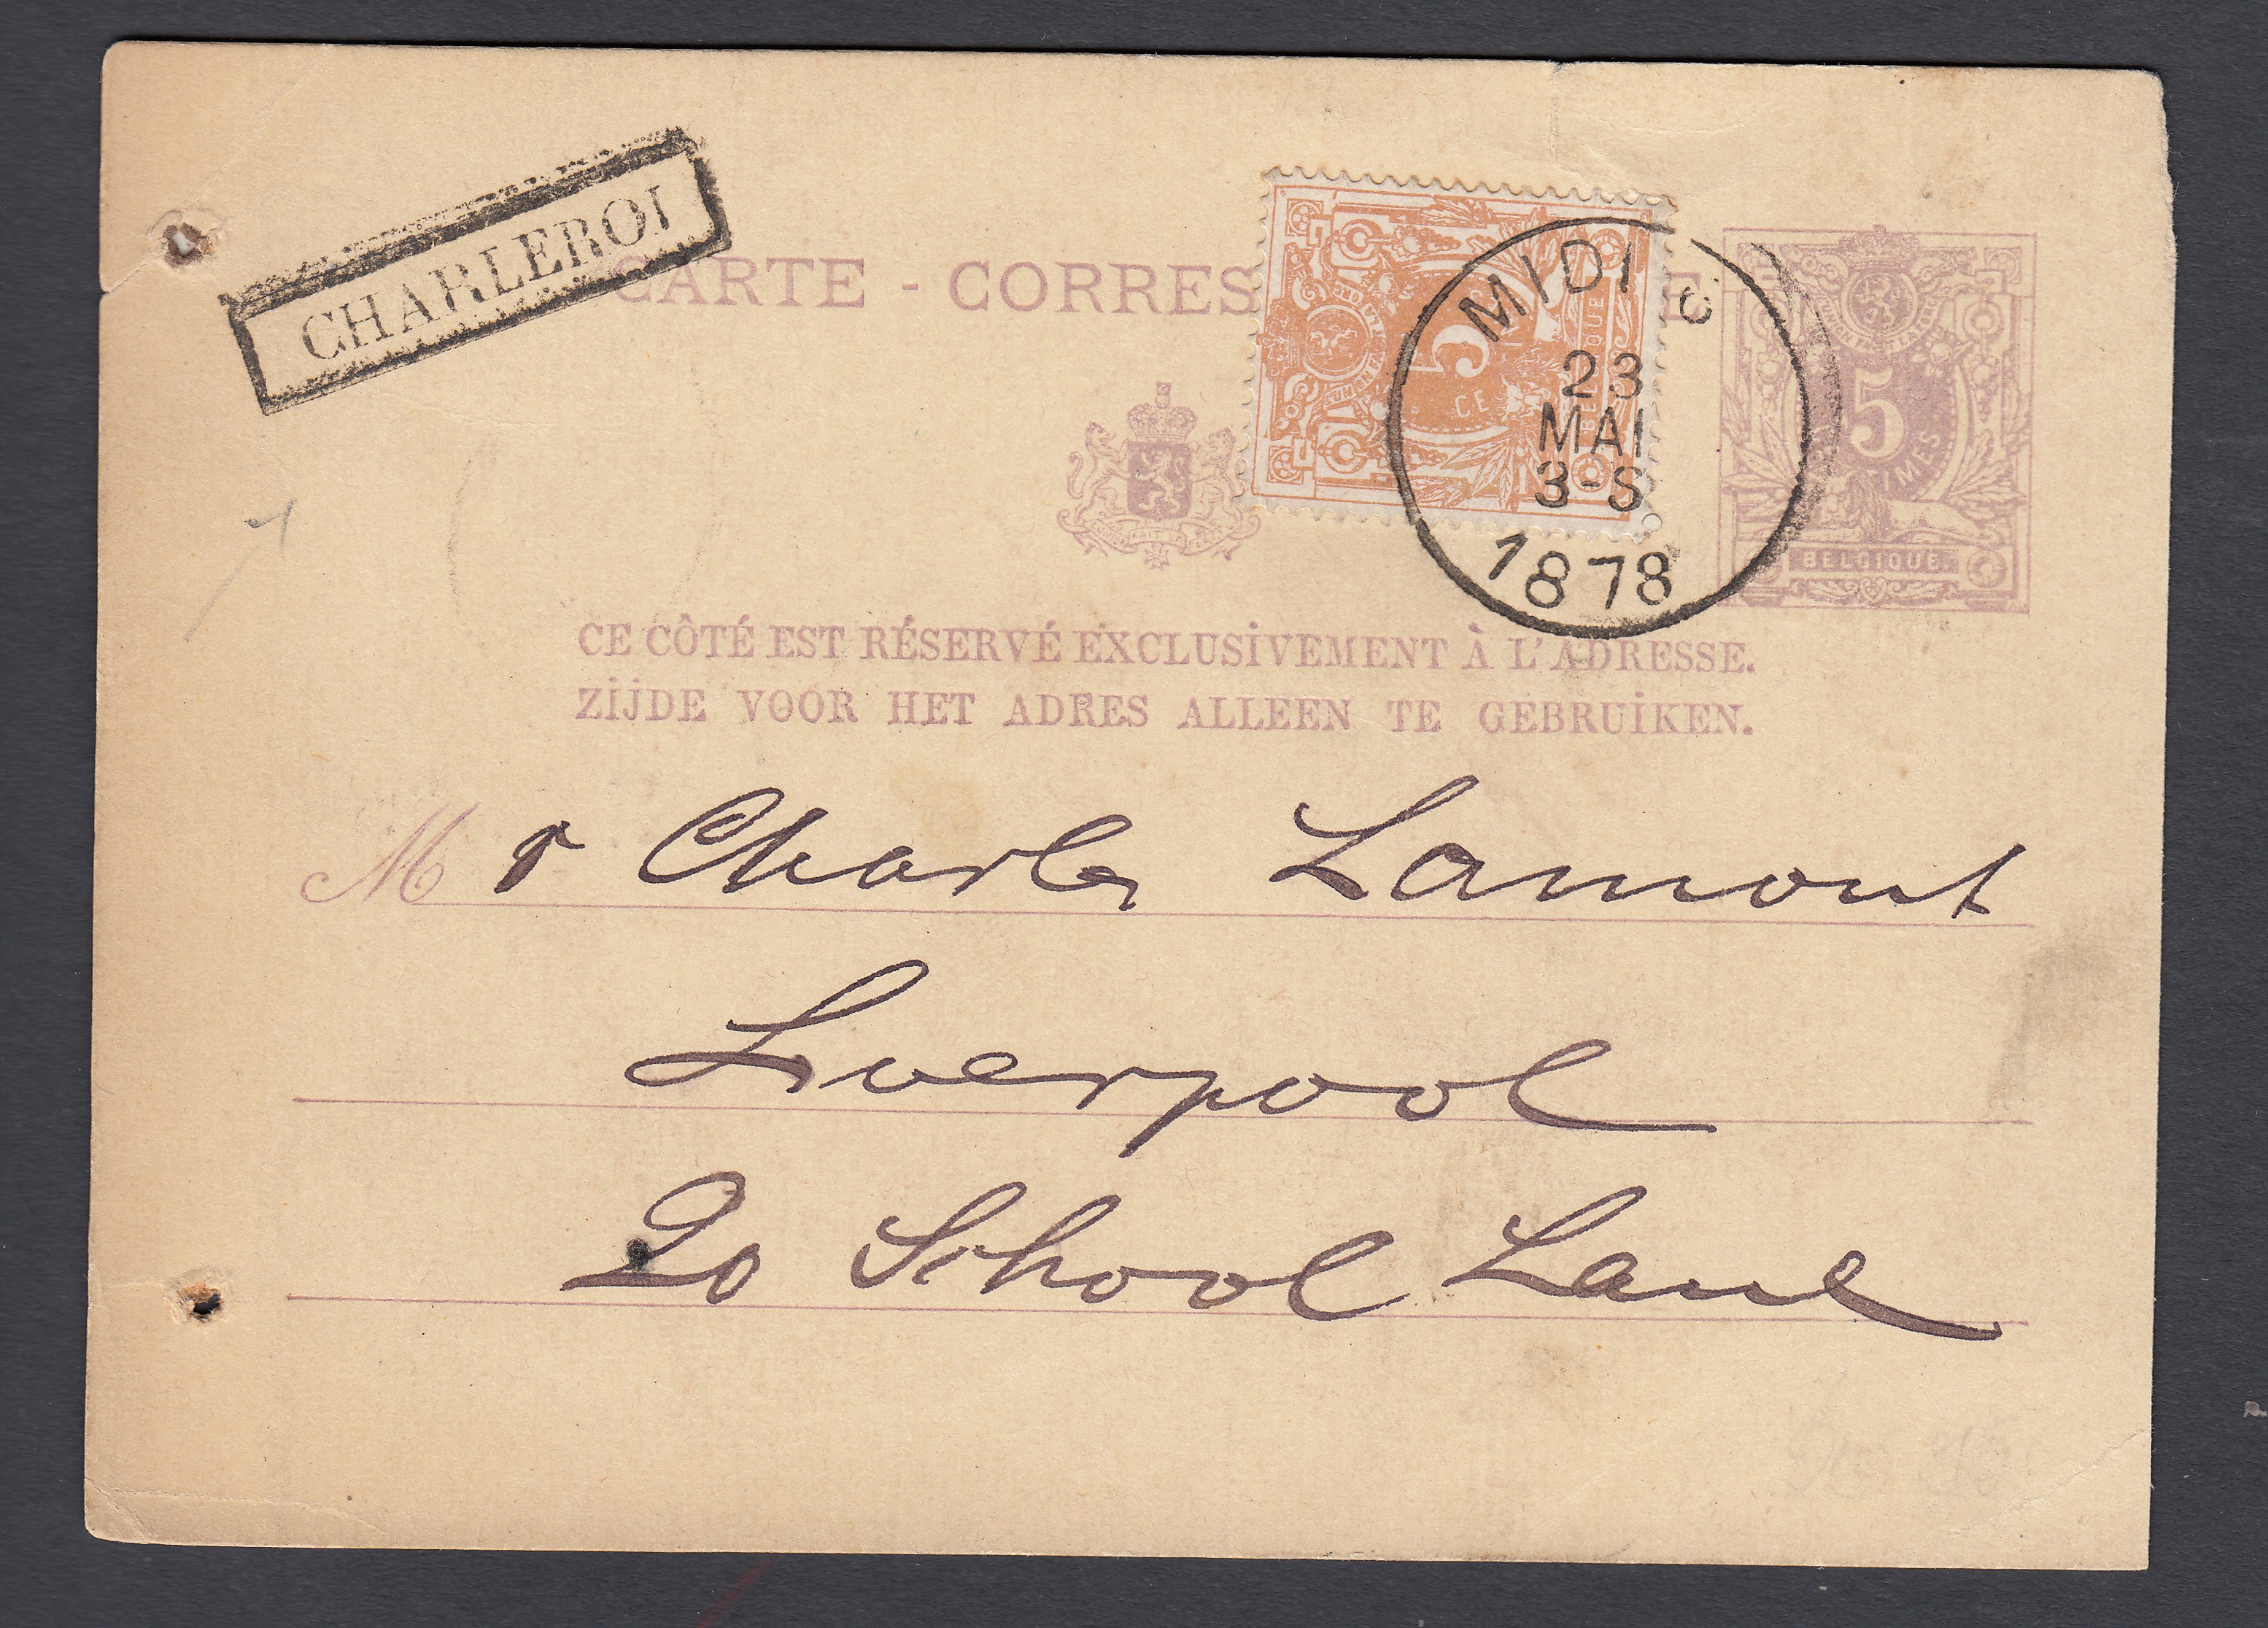 CHARLEROI
CARTE - CORRES E
MIDI
23
MAI
3-S
1878
5
CE
BELGIQUE
5
IMES
BELGIQUE
CE CÔTÉ EST RÉSERVÉ EXCLUSIVEMENT À L'ADRESSE.
ZIJDE VOOR HET ADRES ALLEEN TE GEBRUIKEN.
Mr Charles Lamont
Liverpool
20 School Lane